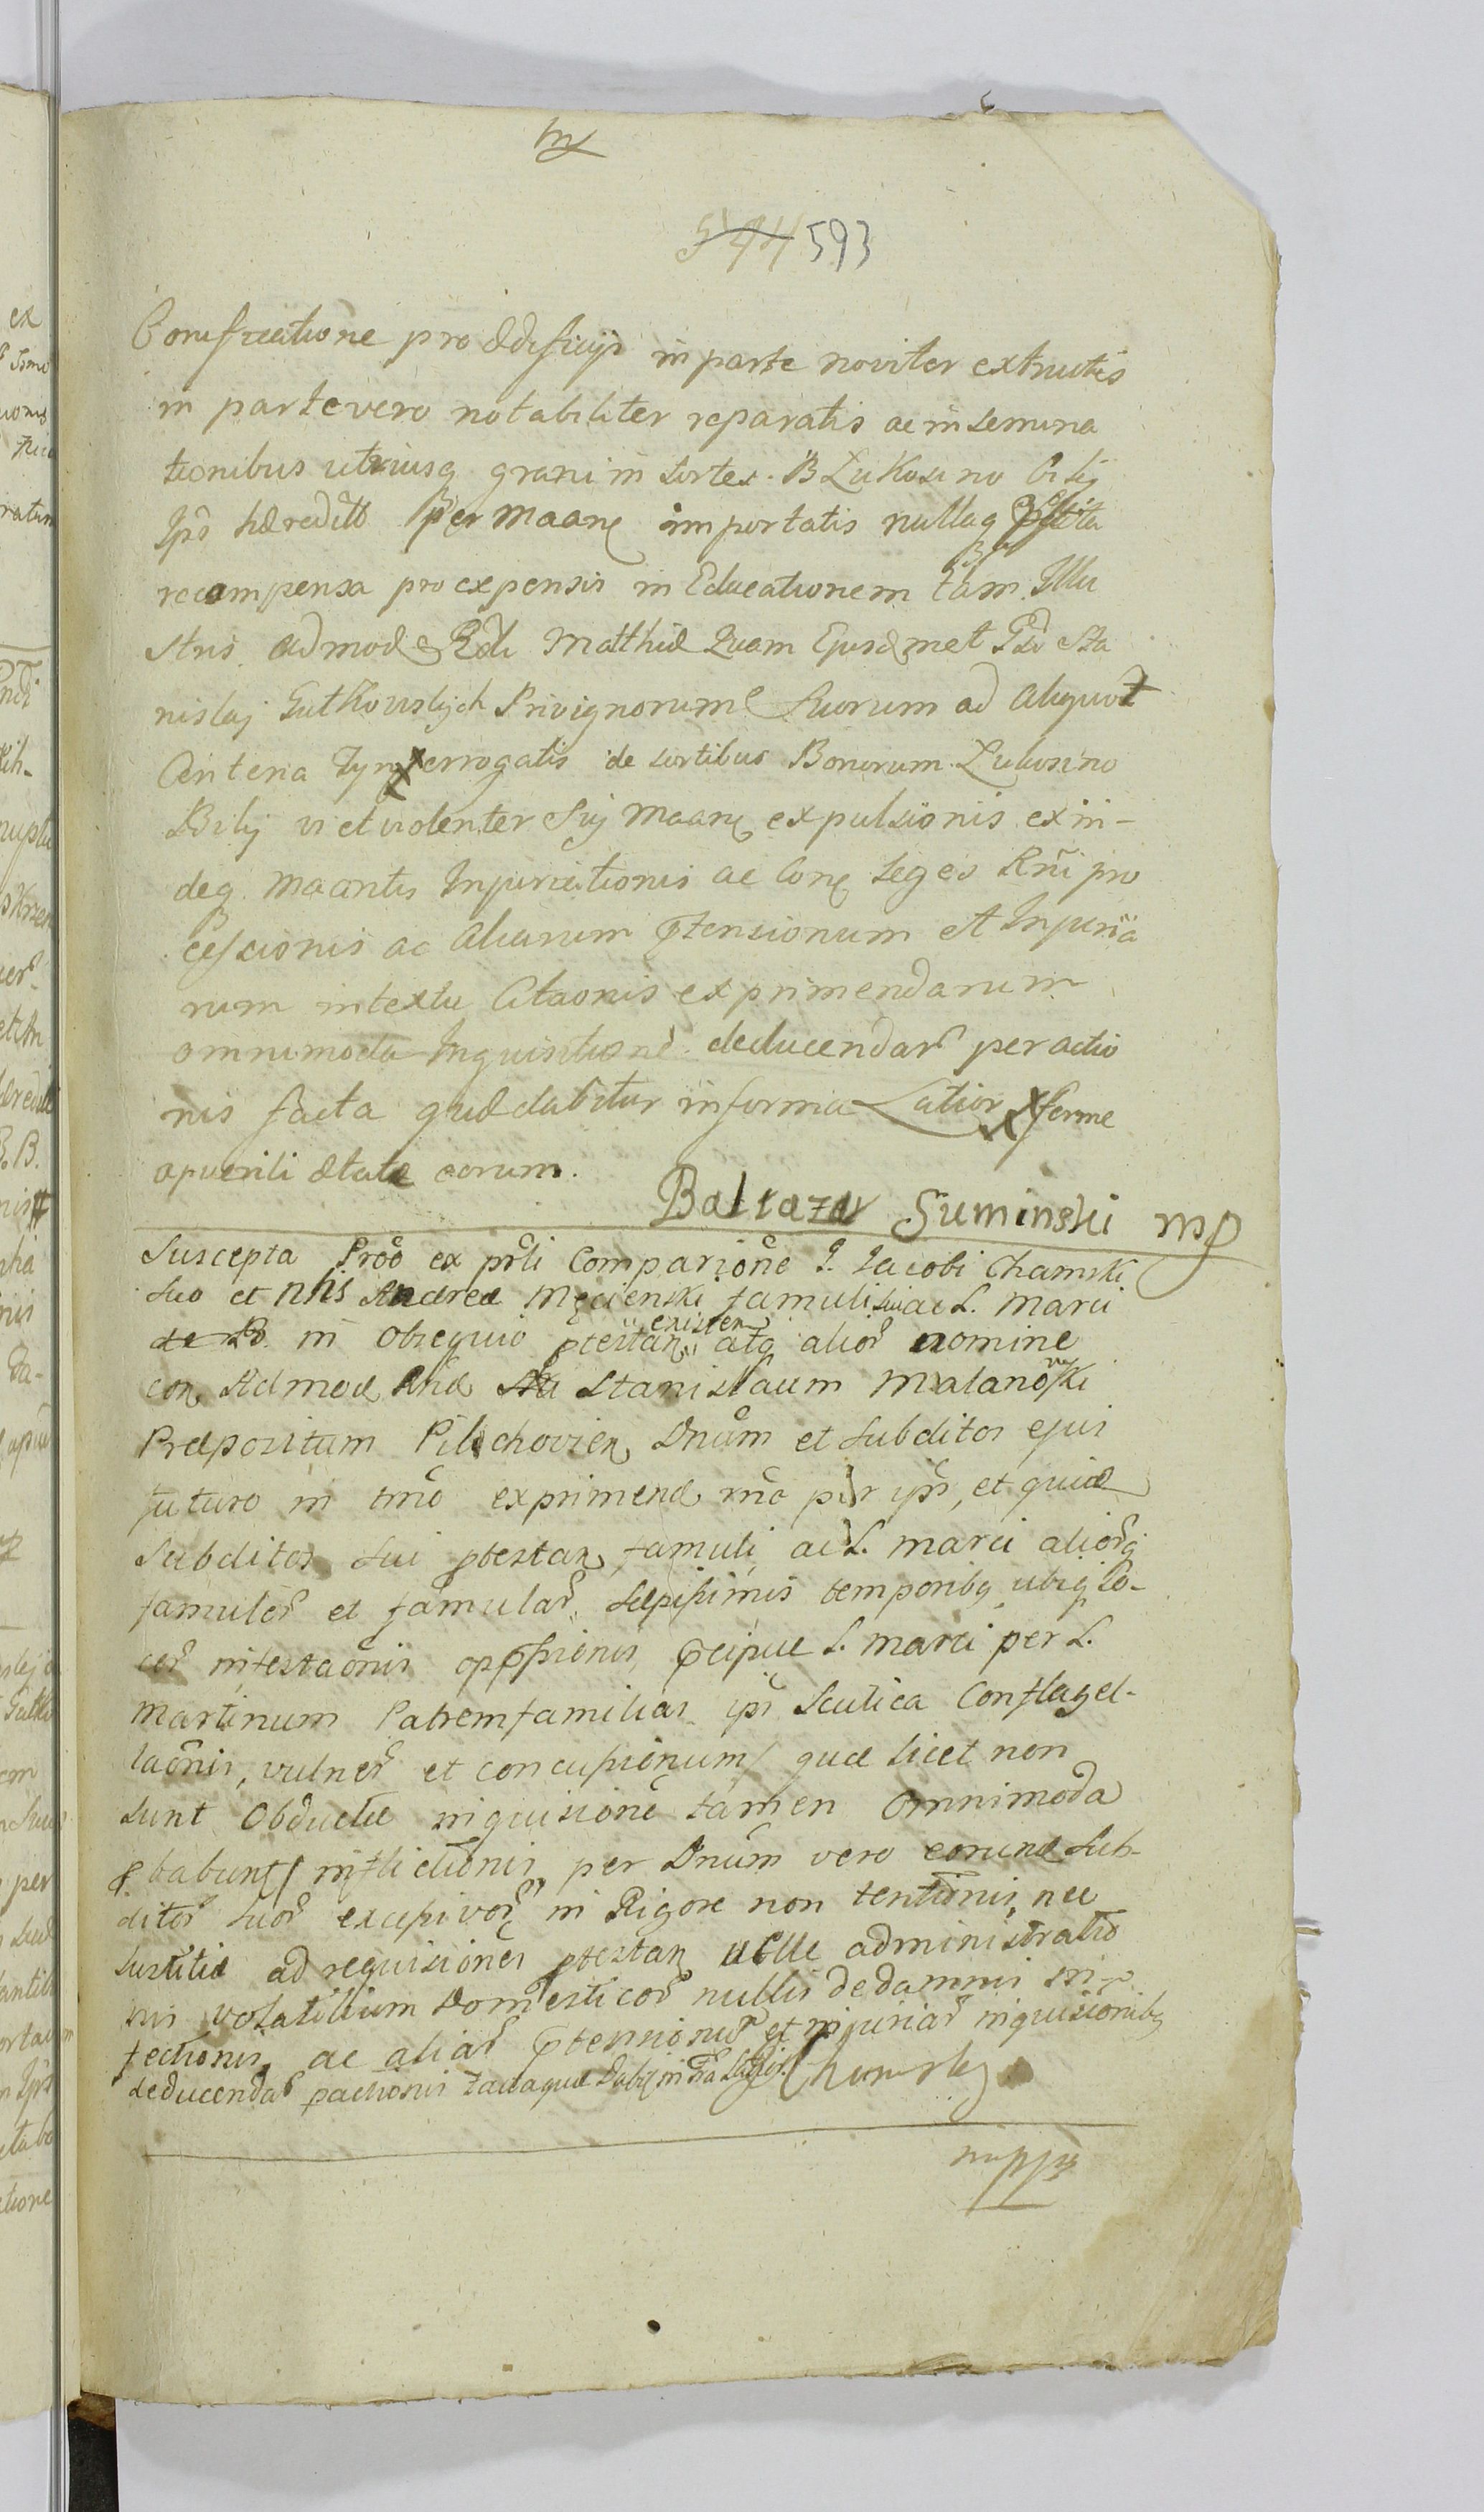 544 593
in parte noviter extructis
in parte vero notabiliter reparatis ac in semina
tionibus utriusq grani in sortes B Lukosino Bilij
Ipś hæreditt per Maanę importatis nullaq
recompensa pro expensis in Educationem tam Illu
stris admodę Rdi Matthiæ Quam Ejusdmet Gsi Sta
nislaj Gutkowskych Privignorum Suorum ad aliquot
Centena errogatis de sortibus Bonorum Lukosino
Bilij vi et violenter Sui Maanę expulsionis exin-
deq. Maantis Injuriationis ac Conę Leges Rñi pro
cessionis ac Aliarum ptensionum et Injuria
rum in textu Citaonis exprimendarum
omnimoda Inquisitione deducendar per actio
nis facta quæ dabitur in forma Latior ferme
a puerili ætate eorum.
Baltazar Suminski mp
Suscepta Prõo ex prli Comparitione G. Jacobi Chamski
suo et nhs Andreæ Męcienski famuli sui ac L. Marci
de B. in obsequio ptestanę existen atq alior nomine
con Admod Rnd Stanislaum Malanowski
Præpositum Pilichovien Dnum et subditos ejus
futuro in tmo exprimend rña per ips, et quia
Subditos sui ptestanę famuli ac L. Marci aliorq
famulor et famular sæpissimis temporibq ubiq lo-
cor infestaonis oppssionis, pcipue L. Marci per L.
Martinum Patremfamilias ips Scutica Conflagel-
laonis, vulner et concussionum/ quæ licet non
sunt obductæ inquisione tamen omnimoda
pbabunt/ inflictionis per Dnum vero eorund sub-
ditor suor excessivor in Rigore non tentionis, nec
Justitiæ ad requisiones ptestanę velle administratio
nis volatilium Domesticor nullis de damnis
fectionis, ac aliar ptensionu et injuriar inquisionibq
deducendar pactionis facta quæ dabit in fra latior Chamsky
mppa